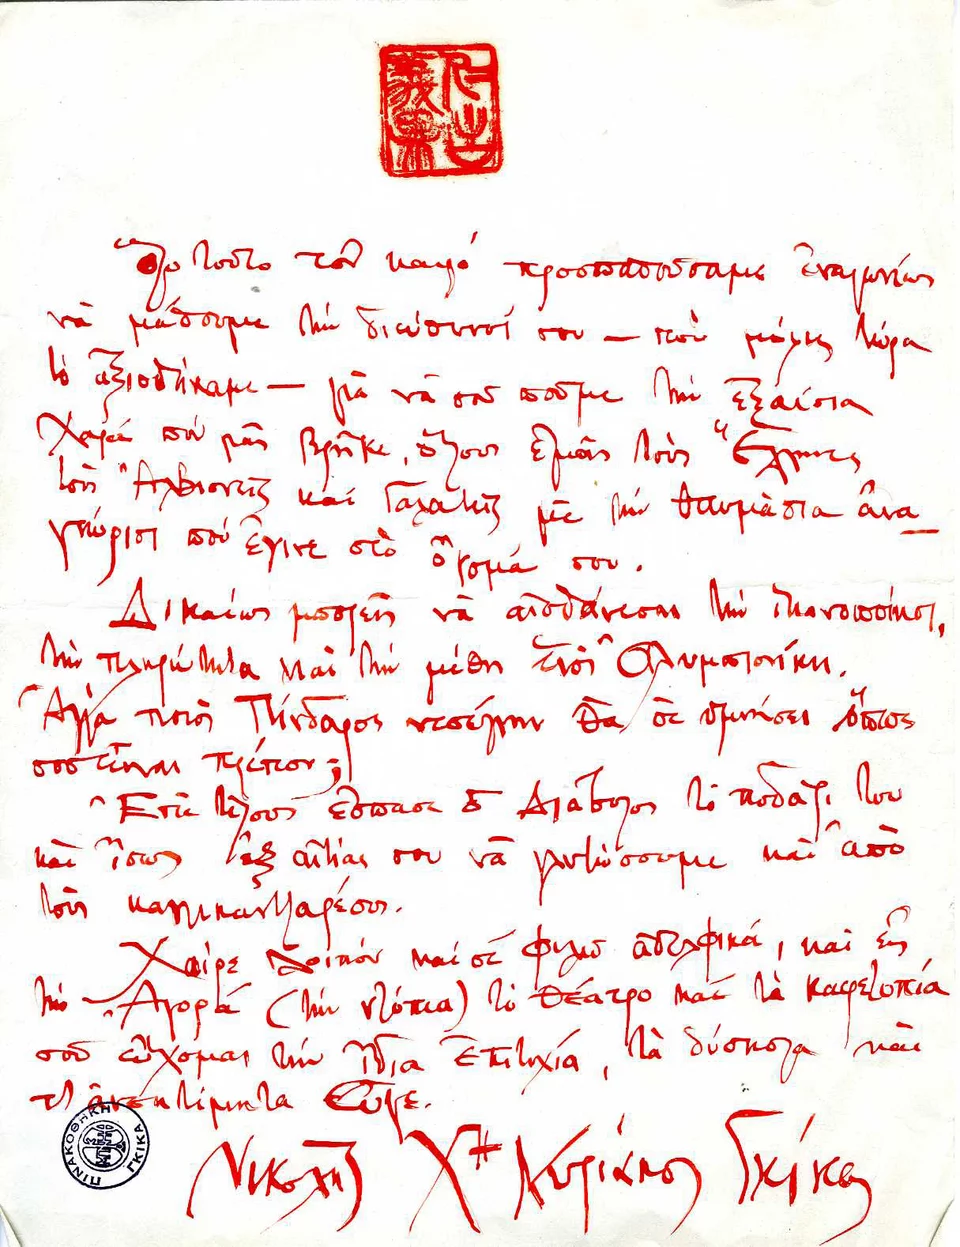 Ὅλο τοῦτο τὸν καιρό προσπαθούσαμε ἐναγωνίως
νὰ μάθουμε τὴν διεύθυνσί σου — ποὺ μόλις τώρα
τὸ ἀξιωθήκαμε — γιὰ νὰ σοῦ ποῦμε τὴν ἐξαίσια
χαρά πού μᾶς βρῆκε, ὅλους ἐμᾶς τοὺς Ἕλληνες
τοῦς καὶ μὲ τὴν θαυμάσια ἀνα
γνώρισι ποὺ ἔγινε στὸ ὄνομά σου.
Δικαίως μπορεῖς νὰ αἰσθάνεσαι τὴν ἱκανοποίησι,
τὴν πληρότητα καὶ τὴν μέθη ἑνὸς Ὀλυμπιονίκη.
Ἀλλὰ ποιὸς Πίνδαρος θὰ σὲ ὑμνήσει ὅπως
σοῦ εἶναι πρέπον;
Ἐπὶ τέλους ἔσπασε ὁ Διάβολος τὸ ποδάρι του
καὶ ἴσως ἐξ αἰτίας σου νὰ γλυτώσουμε καὶ ἀπὸ
τοὺς καλλικαντζαρέους.
Χαῖρε λοιπόν καὶ σὲ φιλῶ ἀδελφικά, καὶ εἰς
τὴν Ἀγορά (τὴν ντόπια) τὸ θέατρο καὶ τὰ
σοῦ εὔχομαι τὴν ἴδια ἐπιτυχία, τὰ δύσκολα καὶ
τ' ἀνεκτίμητα Εὖγε.
Νικολῆς Χῆ Κυριάκος Γκίκας
ΠΙΝΑΚΟΘΗΚΗ ΓΚΙΚΑ